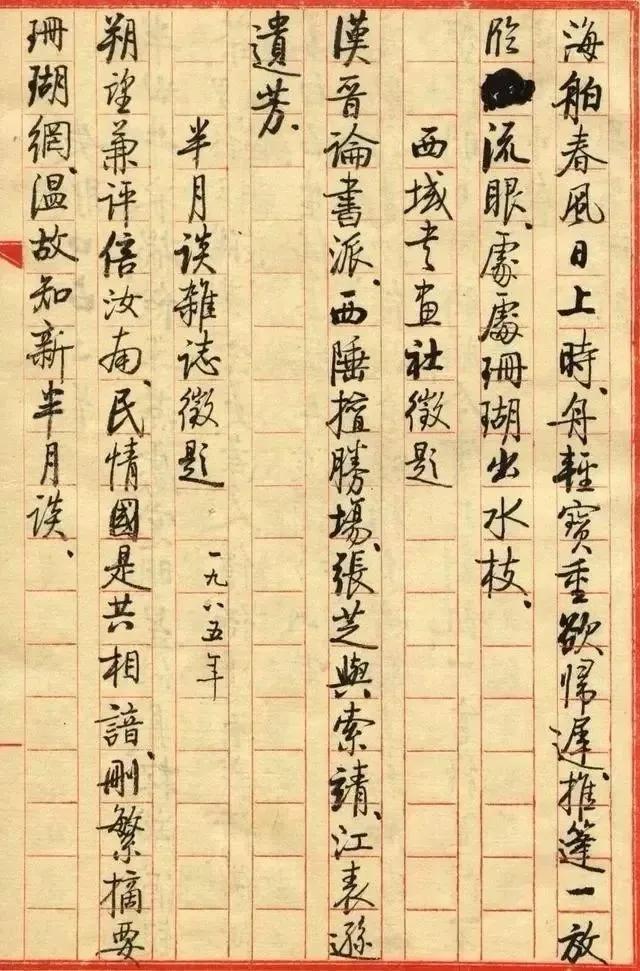 海舶春風日上時、舟輕寶重欲歸遲、推篷一放
临流眼、處處珊瑚出水枝、
西域书画社徵題
漢晋論書派、西陲擅勝場、張芝與索靖、江表遜
遺芳、
半月談雜誌徵題 一九八五年
朔望兼評倍汝南、民情國是共相諳、刪繁摘要
珊瑚網、温故知新半月談、